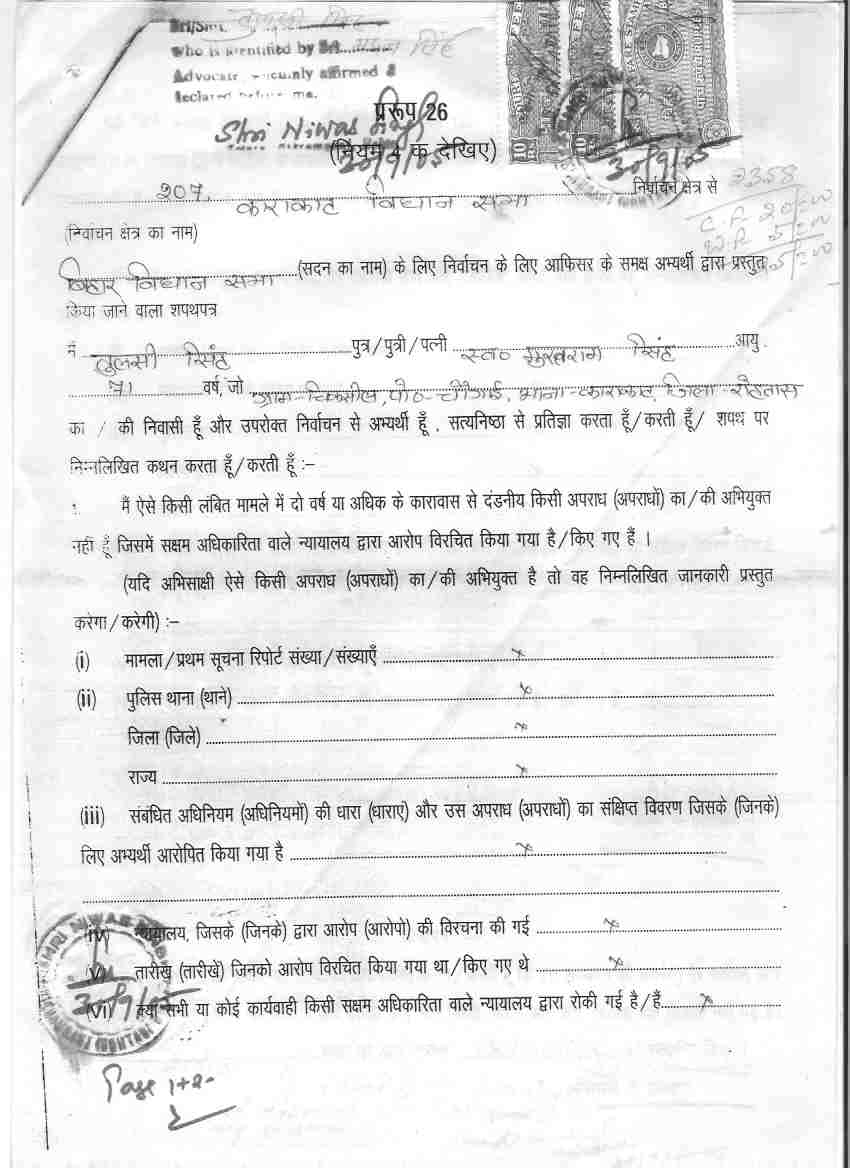 SHI/Smt. तुलसी सिंह
Who is identified by Sri
Advocate affirmed &
declared before me.
Shri Niwas
प्ररूप 26
(नियम 4 क देखिए)
30/9/05
30/9/05
207, काराकाट विधान सभा निर्वाचन क्षेत्र से
(निर्वाचन क्षेत्र का नाम)
बिहार विधान सभा (सदन का नाम) के लिए निर्वाचन के लिए आफिसर के समक्ष अभ्यर्थी द्वारा प्रस्तुत
किया जाने वाला शपथपत्र
मैं तुलसी सिंह पुत्र/पुत्री/पत्नी स्व० सुखराम सिंह आयु
71 वर्ष, जो ग्राम-चिकसील, पो०-चौगाई, थाना-काराकाट, जिला-रोहतास
का / की निवासी हूँ और उपरोक्त निर्वाचन से अभ्यर्थी हूँ , सत्यनिष्ठा से प्रतिज्ञा करता हूँ/करती हूँ/ शपथ पर
निम्नलिखित कथन करता हूँ/करती हूँ :-
मैं ऐसे किसी लंबित मामले में दो वर्ष या अधिक के कारावास से दंडनीय किसी अपराध (अपराधों) का/की अभियुक्त
नहीं हूँ जिसमें सक्षम अधिकारिता वाले न्यायालय द्वारा आरोप विरचित किया गया है/किए गए हैं ।
(यदि अभिसाक्षी ऐसे किसी अपराध (अपराधों) का/की अभियुक्त है तो वह निम्नलिखित जानकारी प्रस्तुत
करेगा/करेगी) :-
(i) मामला/प्रथम सूचना रिपोर्ट संख्या/संख्याएँ x
(ii) पुलिस थाना (थाने) x
जिला (जिले) x
राज्य x
(iii) संबंधित अधिनियम (अधिनियमों) की धारा (धाराए) और उस अपराध (अपराधों) का संक्षिप्त विवरण जिसके (जिनके)
लिए अभ्यर्थी आरोपित किया गया है x
(iv) न्यायालय, जिसके (जिनके) द्वारा आरोप (आरोपो) की विरचना की गई x
(V) तारीख (तारीखें) जिनको आरोप विरचित किया गया था/किए गए थे x
(VI) क्या सभी या कोई कार्यवाही किसी सक्षम अधिकारिता वाले न्यायालय द्वारा रोकी गई है/हैं x
30/9/05
Page 1+2